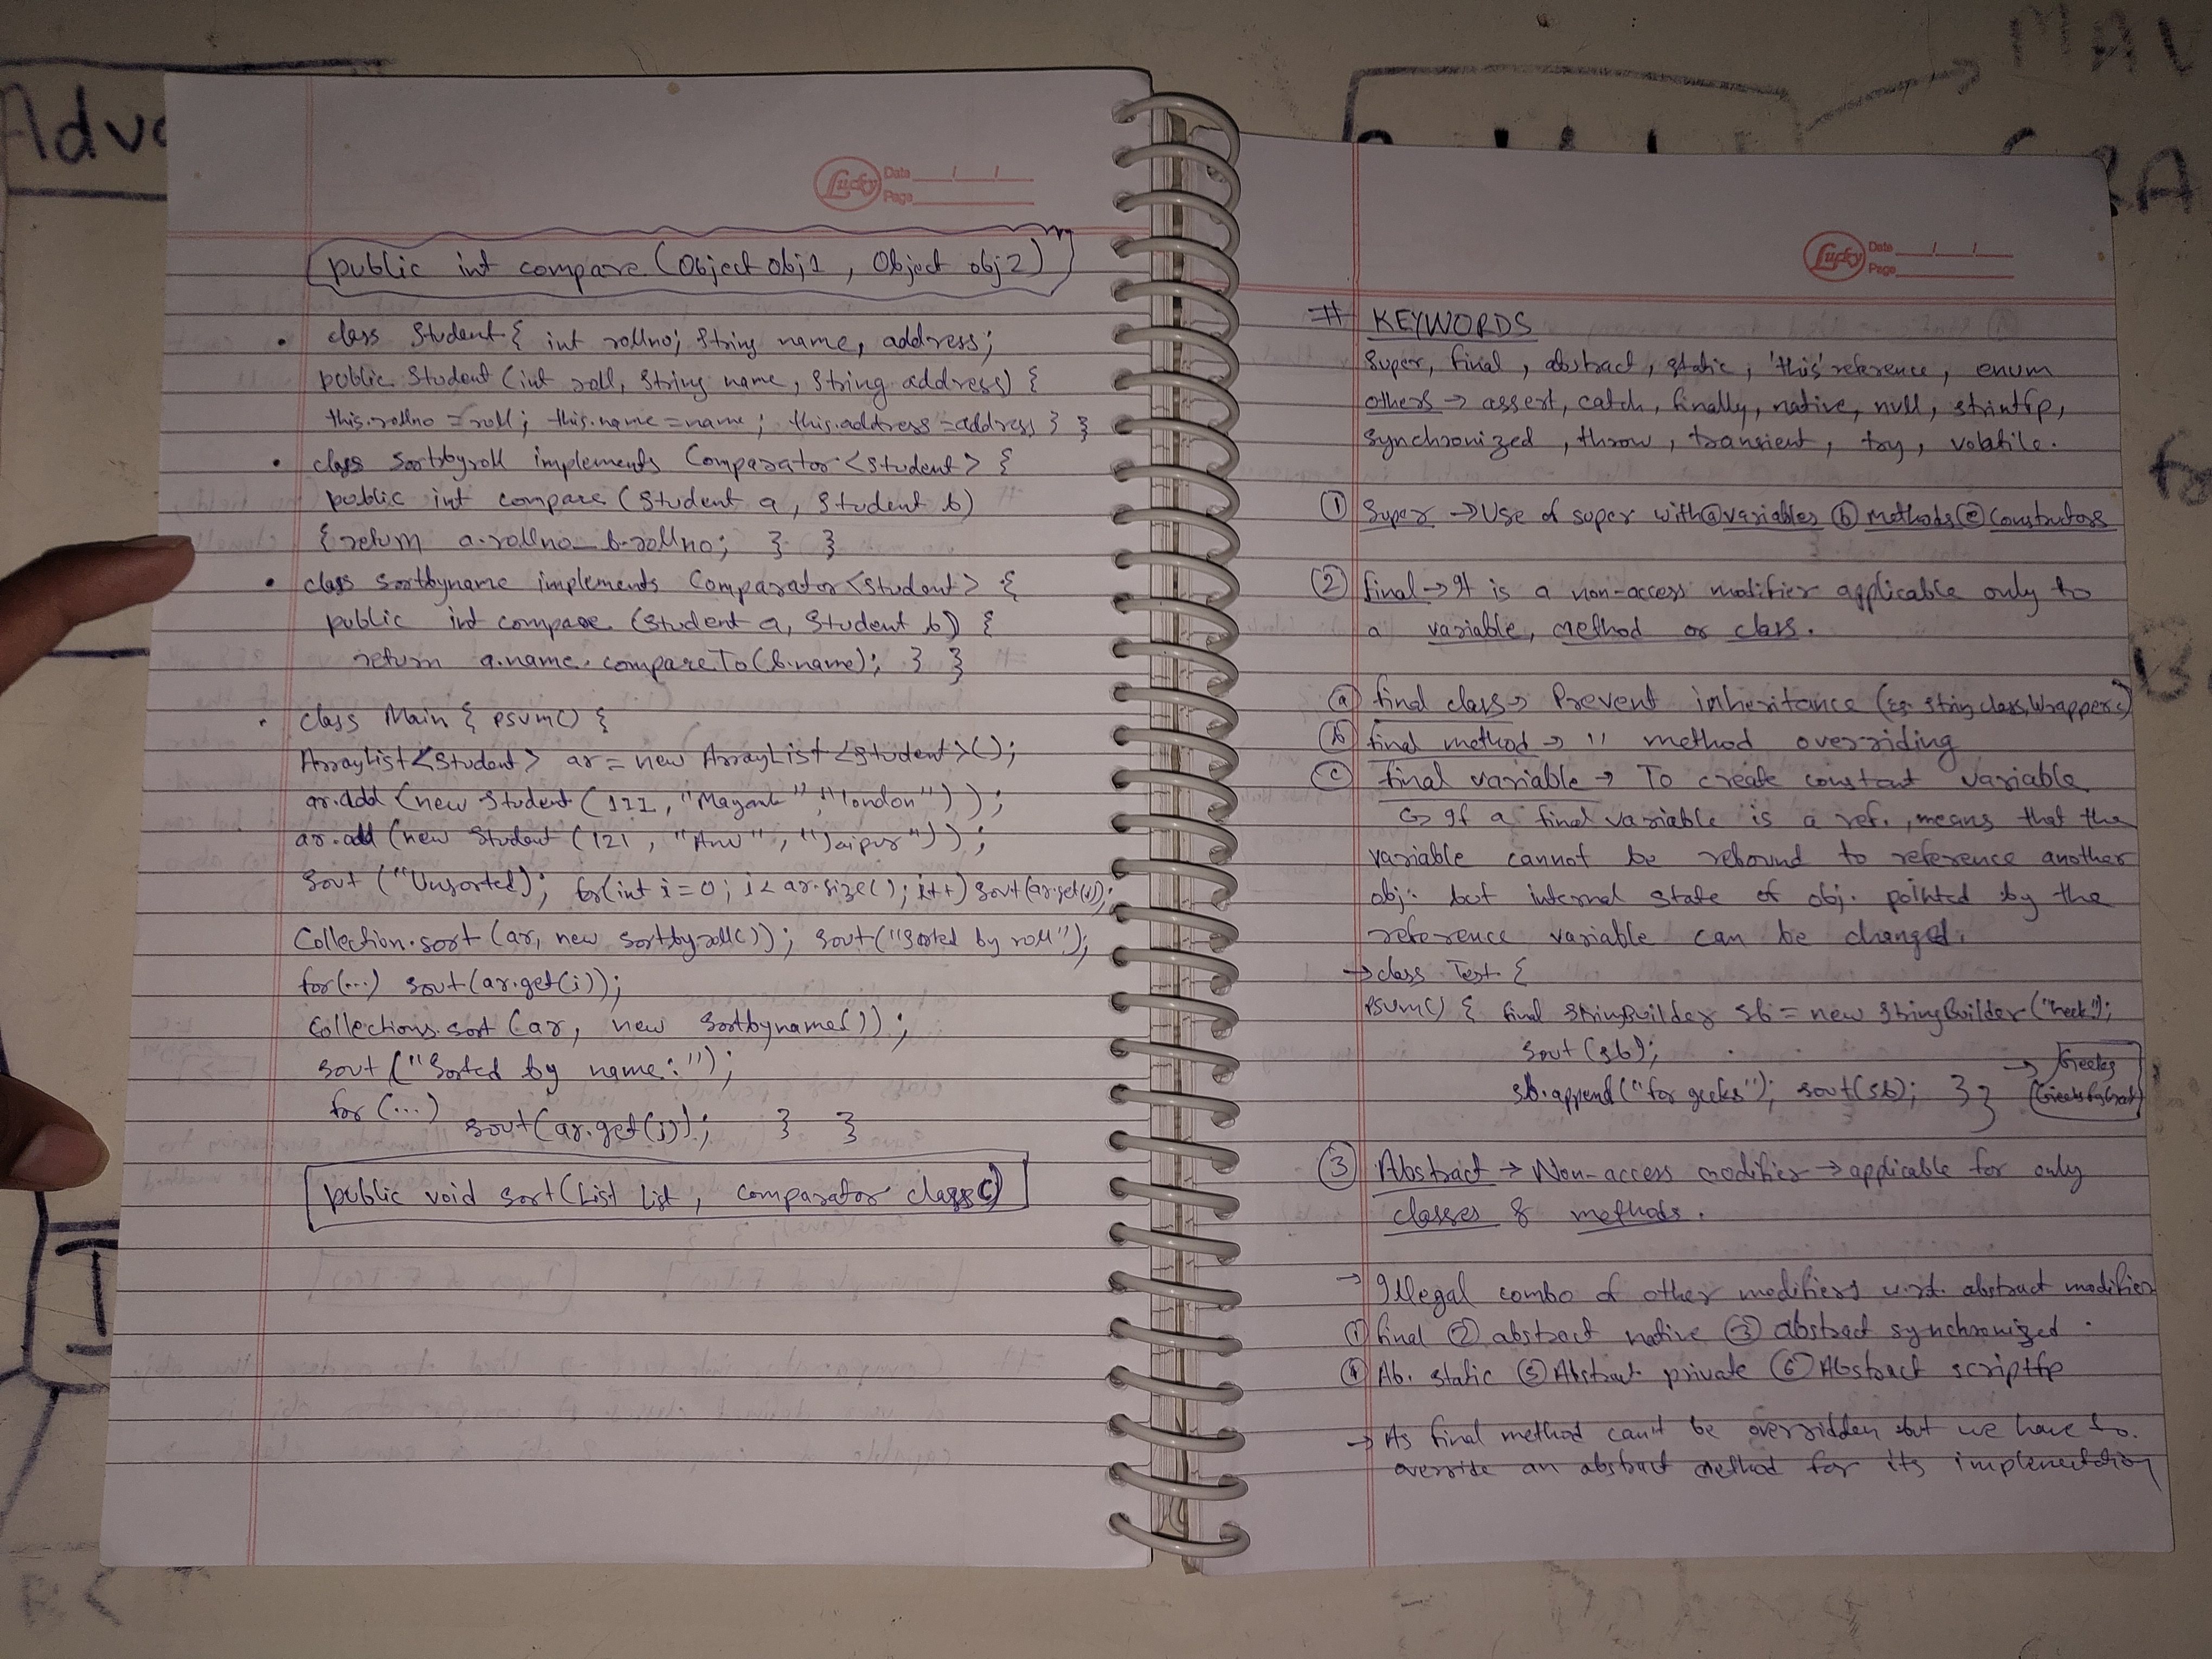 Adva
MAV
RA
fo
B
Lucky Date / /
Page
public int compare (Object obj1 , Object obj2)
• class Student { int rollno; String name, address;
public Student (int roll, String name, String address) {
this.rollno = roll; this.name = name; this.address = address } }
• class sortbyroll implements Comparator <Student> {
public int compare (Student a, Student b)
{ return a.rollno - b.rollno; } }
• class sortbyname implements Comparator <Student> {
public int compare (Student a, Student b) {
return a.name.compareTo(b.name); } }
• class Main { psvm() {
ArrayList <Student> ar = new ArrayList <Student>();
ar.add (new Student (111, "Mayank", "london"));
ar.add (new Student (121, "Anu", "Jaipur"));
Sout ("Unsorted); for(int i = 0; i < ar.size(); i++) Sout(ar.get(i));
Collection.sort (ar, new sortbyroll()); sout("Sorted by roll");
for(...) sout(ar.get(i));
Collections.sort (ar, new Sortbyname());
sout ("Sorted by name:");
for (...)
sout(ar.get(i)); } }
public void sort(List list, comparator class c)
Lucky Date / /
Page
# KEYWORDS
Super, final, abstract, static, 'this' reference, enum
others → assert, catch, finally, native, null, strintfp,
synchronized, throw, transient, try, volatile.
① Super → Use of super with ⓐ variables ⓑ methods ⓒ Constructors
② final → It is a non-access modifier applicable only to
a variable, method or class.
ⓐ final class → Prevent inheritance (eg. String class, Wrapper c)
ⓑ final method → '' method overriding
ⓒ final variable → To create constant variable
↳ If a final variable is a ref., means that the
variable cannot be rebound to reference another
obj. but internal state of obj. pointed by the
reference variable can be changed.
→ class Test {
PSVM() { final StringBuilder sb = new StringBuilder ("heek");
Sout (sb);
sb.append("for geeks"); sout(sb); } }
→ Geeks
GeeksforGeeks
③ Abstract → Non-access modifier → applicable for only
classes & methods.
→ Illegal combo of other modifiers w.r.t. abstract modifier
① final ② abstract native ③ abstract synchronized.
④ Ab. static ⑤ Abstract private ⑥ Abstract scriptfp
→ As final method can't be overridden but we have to
override an abstract method for its implementation